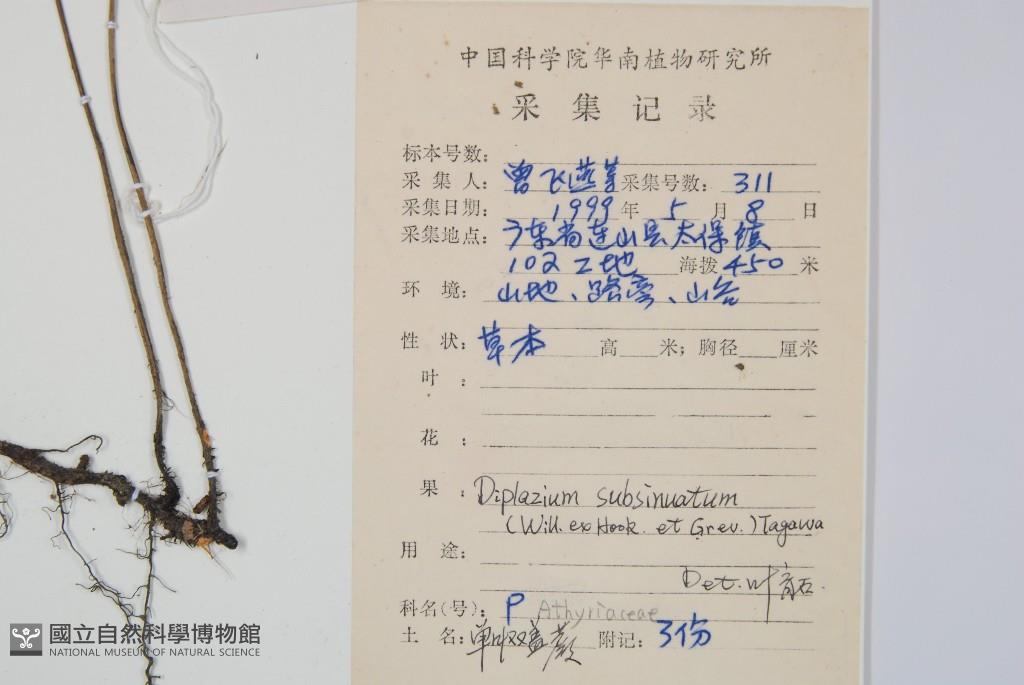 中国科学院华南植物研究所
采集记录
标本号数：
采集人：曾飞燕等 采集号数：311
采集日期：1999年5月8日
采集地点：广东省连山县太保镇
102工地 海拨450米
环境：山地、路旁、山谷
性状：草本 高 米；胸径 厘米
叶：
花：
果：Diplazium subsinuatum
(Will. ex Hook. et Grev.) Tagawa
用途：
Det. 叶育石.
科名(号)：P Athyriaceae
土名：单叶双盖蕨 附记：3份
國立自然科學博物館
NATIONAL MUSEUM OF NATURAL SCIENCE